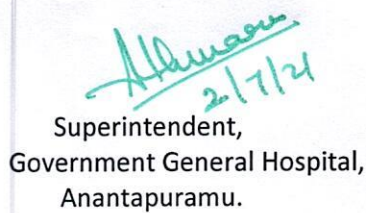 2/7/21
Superintendent,
Government General Hospital,
Anantapuramu.